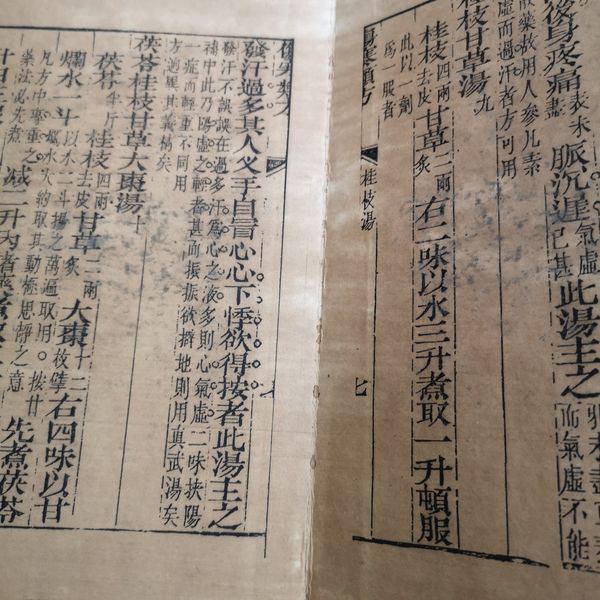 後身疼痛 表未 脈沉遲 氣虛 已甚 此湯主之 邪未盡
盡 而氣虛不能
散藥故用人參凡素
虛而過汗者方可用
桂枝甘草湯 九
桂枝 四兩 去皮 甘草 二兩 炙 右二味以水三升煮取一升頓服
此以一劑
爲一服者
類方
桂枝湯
七
傷寒類方
發汗過多其人叉手自冒心心下悸欲得按者此湯主之
發汗不誤誤在過多汗爲心之液多則心氣虛二味扶陽
補中此乃陽虛之輕者甚而振振欲擗地則用真武湯矣
一症而輕重不同用
方迥異其義精矣
茯苓桂枝甘草大棗湯 十
茯苓 半斤 桂枝 四兩 去皮 甘草 二兩 炙 大棗 十二 枚擘 右四味以甘
爛水一斗 以水二斗揚之萬遍取用按甘 爛水大約取其動極思靜之意 先煮茯苓
凡方中專重之
藥法必先煮 減二升内